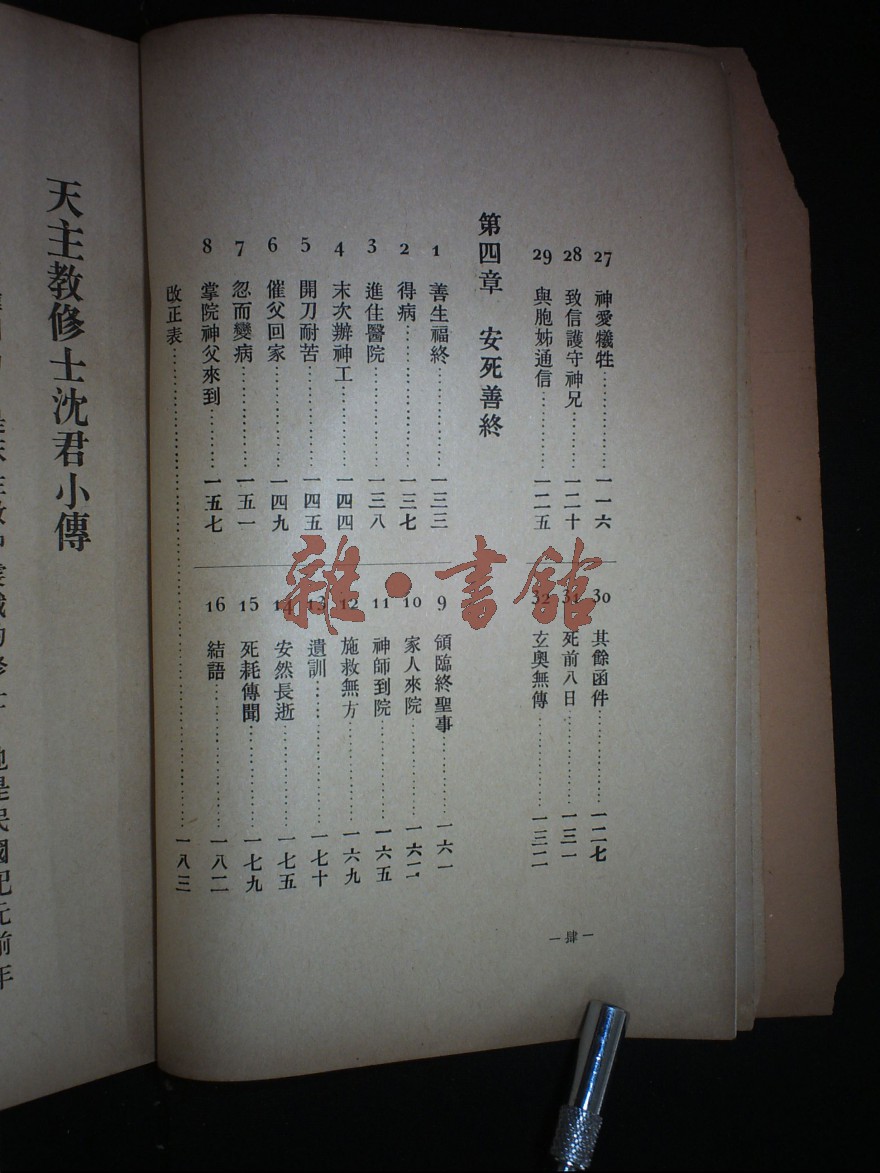 27 神愛犧牲…………一一六
28 致信護守神兄………一二十
29 與胞姊通信…………一二五
30 其餘函件…………一二七
31 死前八日…………一三一
32 玄奧無傳…………一三二
第四章 安死善終
1 善生福終…………一三三
2 得病…………一三七
3 進住醫院…………一三八
4 末次辦神工…………一四四
5 開刀耐苦…………一四五
6 催父回家…………一四九
7 忽而變病…………一五一
8 掌院神父來到………一五七
9 領臨終聖事…………一六一
10 家人來院…………一六二
11 神師到院…………一六五
12 施救無方…………一六九
13 遺訓…………一七十
14 安然長逝…………一七五
15 死耗傳聞…………一七九
16 結語…………一八二
改正表…………一八三
—肆—
天主教修士沈君小傳
也是民國紀元前年
雜·書館